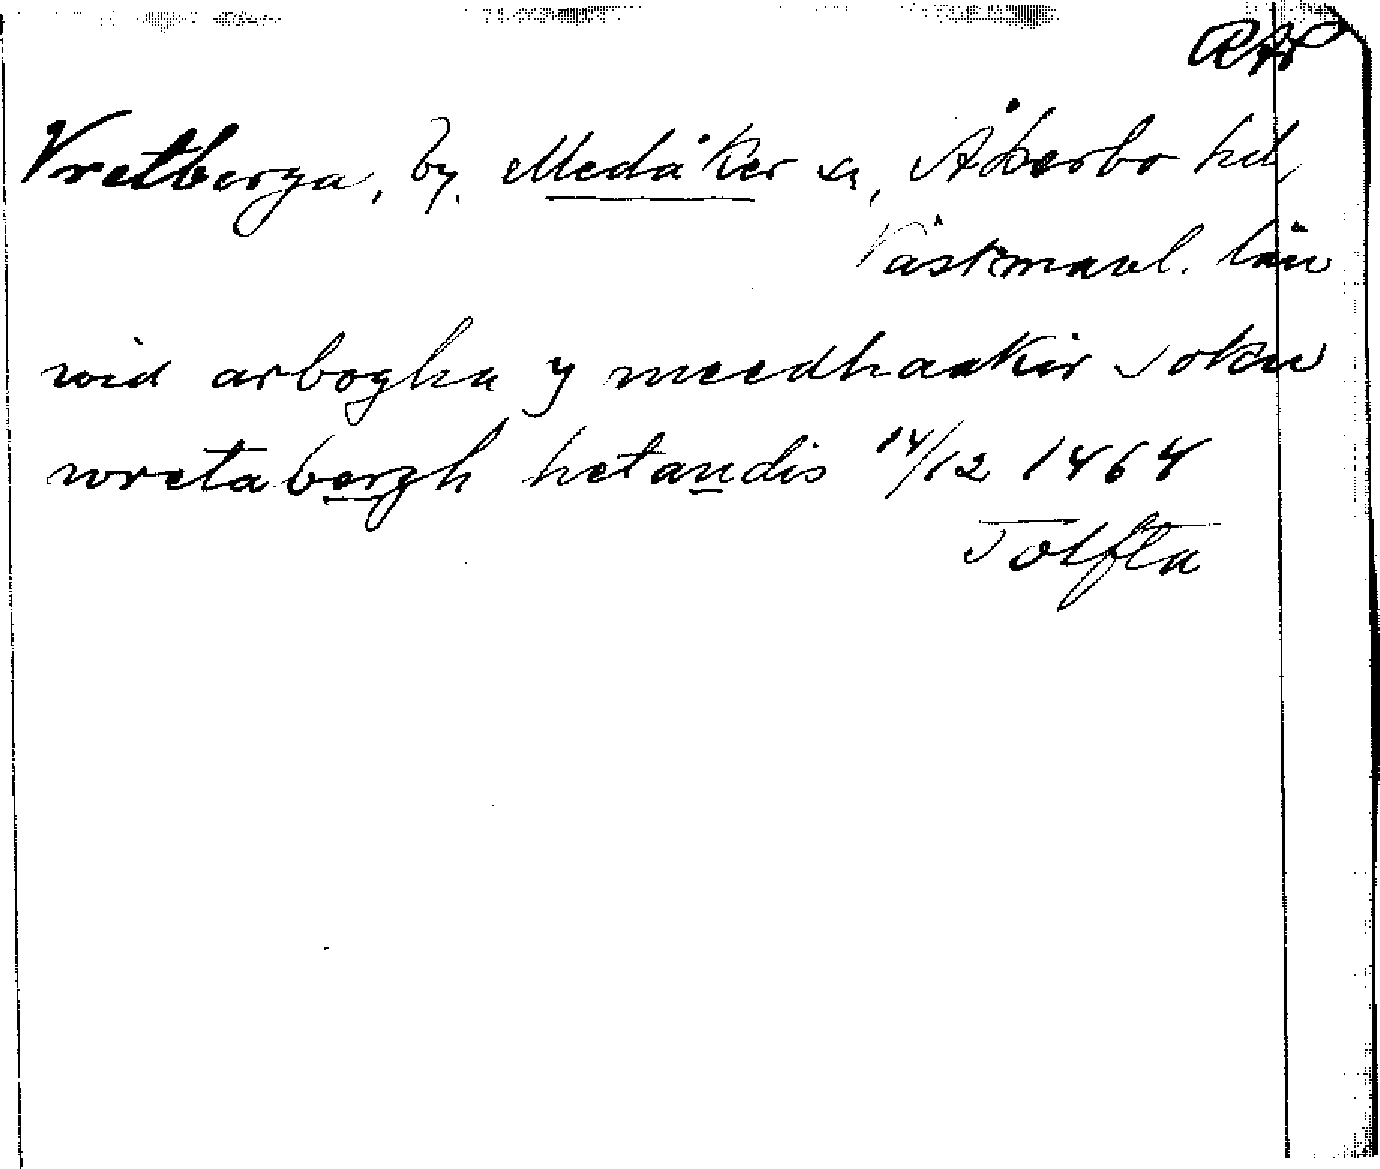 RAP
Vretberga, by. Medåker sn, Åkerbo hd,
Västmanl. län
wid arbogha y meedhaakir sokn
wretabergh hetandis 14/12 1464
Tolfta